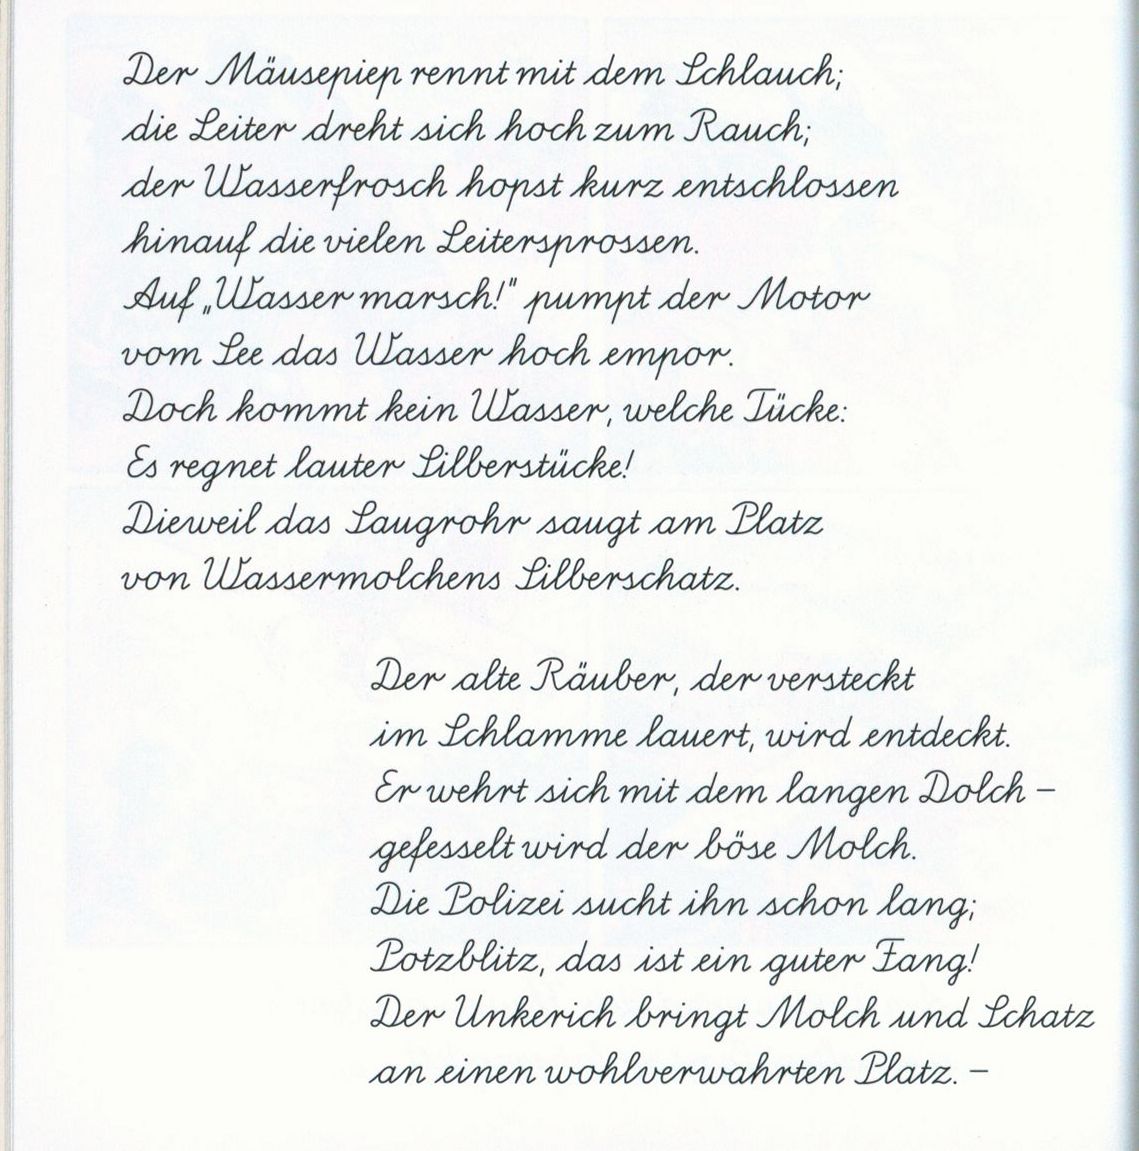 Der Mäusepiep rennt mit dem Schlauch;
die Leiter dreht sich hoch zum Rauch;
der Wasserfrosch hopst kurz entschlossen
hinauf die vielen Leitersprossen.
Auf „Wasser marsch!" pumpt der Motor
vom See das Wasser hoch empor.
Doch kommt kein Wasser, welche Tücke:
Es regnet lauter Silberstücke!
Dieweil das Saugrohr saugt am Platz
von Wassermolchens Silberschatz.
Der alte Räuber, der versteckt
im Schlamme lauert, wird entdeckt.
Er wehrt sich mit dem langen Dolch –
gefesselt wird der böse Molch.
Die Polizei sucht ihn schon lang;
Potzblitz, das ist ein guter Fang!
Der Unkerich bringt Molch und Schatz
an einen wohlverwahrten Platz. –